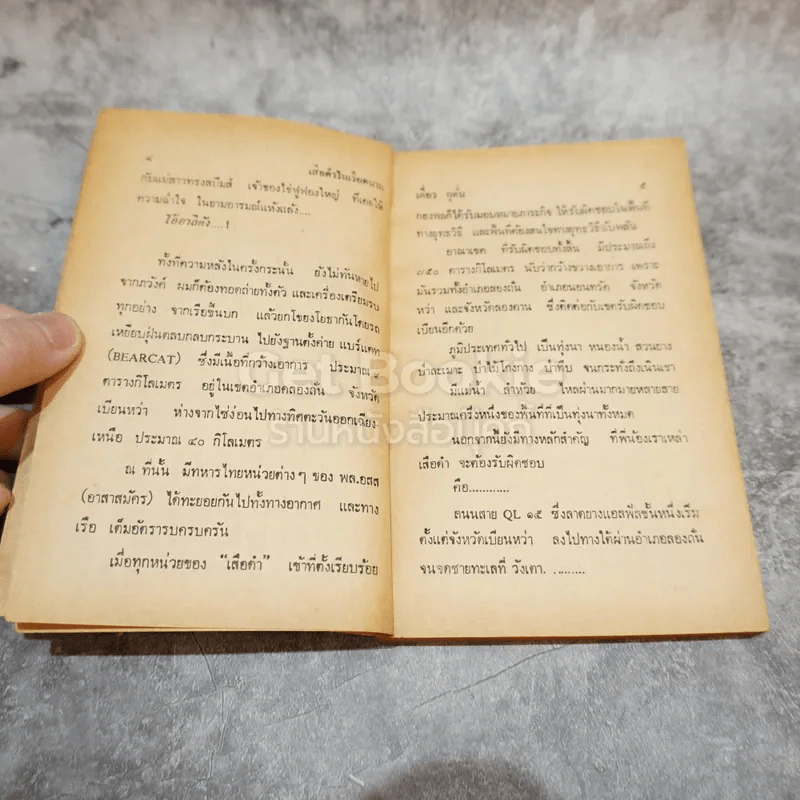 ๔ เสือดำในเวียดนาม
กับแม่สาวทรงสบึมส์ เจ้าของไข่ฟูฟองใหญ่ ที่เคยให้
ความฉ่ำใจ ในยามอารมณ์แห้งแล้ง....
โอ้อาลีตัง....!
ทั้งที่ความหลังในครั้งกระนั้น ยังไม่ทันหายไป
จากภวังค์ ผมก็ต้องทอดถ่ายทั้งตัว และเครื่องเตรียมรบ
ทุกอย่าง จากเรือขึ้นบก แล้วยกโขยงโยธากันโดยรถ
เหยียบฝุ่นตลบกลบกระบาน ไปยังฐานตั้งค่าย แบร์แคท
(BEARCAT) ซึ่งมีเนื้อที่กว้างเอาการ ประมาณ ๔
ตารางกิโลเมตร อยู่ในเขตอำเภอลองถั่น จังหวัด
เบียนหว่า ห่างจากไซ่ง่อนไปทางทิศตะวันออกเฉียง-
เหนือ ประมาณ ๔๐ กิโลเมตร
ณ ที่นั้น มีทหารไทยหน่วยต่างๆ ของ พล.อสส
(อาสาสมัคร) ได้ทะยอยกันไปทั้งทางอากาศ และทาง
เรือ เต็มอัตรารบครบครัน
เมื่อทุกหน่วยของ “เสือดำ” เข้าที่ตั้งเรียบร้อย
เคี่ยว ๕
กองพลก็ได้รับมอบหมายภาระกิจ ให้รับผิดชอบในพื้นที่
ทางยุทธวิธี และพื้นที่ต้องสนใจทางยุทธวิธีฉับพลัน
อาณาเขต ที่รับผิดชอบทั้งสิ้น มีประมาณถึง
๗๕๐ ตารางกิโลเมตร นับว่ากว้างขวางเอาการ เพราะ
มันรวมทั้งอำเภอลองถั่น อำเภอนอนทรัค จังหวัด
หว่า และจังหวัดลองคาน ซึ่งติดต่อกับเขตรับผิดชอบ
เบียนอีกด้วย
ภูมิประเทศทั่วไป เป็นทุ่งนา หนองน้ำ สวนยาง
ป่าละเมาะ ป่าไม้โกงกาง ป่าทึบ จนกระทั่งถึงเนินเขา
มีแม่น้ำ ลำห้วย ไหลผ่านมากมายหลายสาย
ประมาณครึ่งหนึ่งของพื้นที่ที่เป็นทุ่งนาทั้งหมด
นอกจากนี้ยังมีทางหลักสำคัญ ที่พี่น้องเราเหล่า
เสือดำ จะต้องรับผิดชอบ
คือ............
ถนนสาย QL ๑๕ ซึ่งลาดยางแอลฟัลชั้นหนึ่งเริ่ม
ตั้งแต่จังหวัดเบียนหว่า ลงไปทางใต้ผ่านอำเภอลองถั่น
จนจดชายทะเลที่ วังเตา. .........
Get Bookie
ร้านหนังสือเก่า